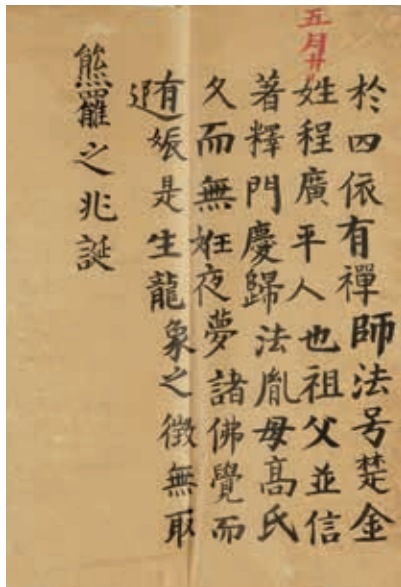 五月廿
於四依有禪師法号楚金
姓程廣平人也祖父並信
著釋門慶歸法胤母高氏
久而無妊夜夢諸佛覺而
有娠是生龍象之徵無取
熊罹之兆誕